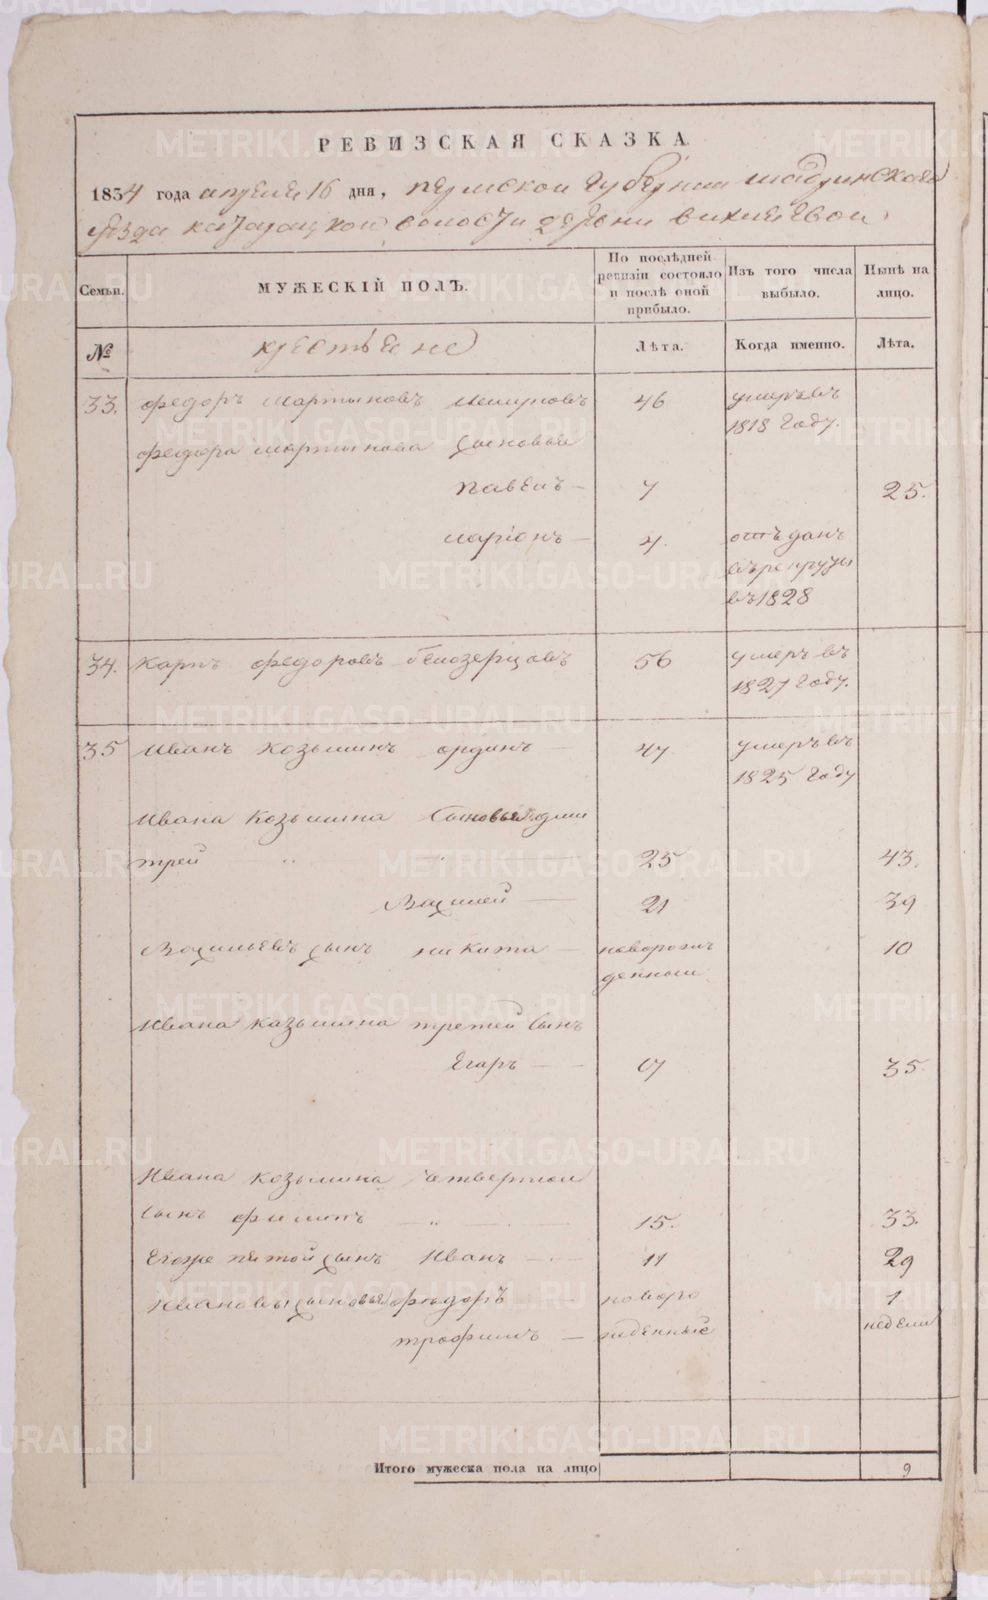 РЕВИЗСКАЯ СКАЗКА.
1834 года апреля 16 дня, пермской губернии шадринскаго
уезда катайской волости деревни
Семьи. МУЖЕСКІЙ ПОЛЪ. По послѣдней ревизіи состояло и послѣ оной прибыло. Изъ того числа выбыло. Нынѣ на лицо.
№ крестьяне Лѣта. Когда именно. Лѣта.
33. федоръ мартыновъ 46 умеръ въ
1818 году.
федора мартынова сыновья
павелъ — 7 25.
ларіонъ — 4. отъданъ
въ рекруты
въ 1828
34. карпъ федоровъ белозерцовъ 56 умеръ въ
1827 году.
35 иванъ козьминъ ординъ — 47 умеръ въ
1825 году
ивана козьмина сыновья дми
трей 25 43.
василей — 21 39
васильевъ сынъ никита — новорож 10
денный
ивана казьмина третей сынъ
Егаръ — 17 35.
ивана козьмина четвертой
сынъ филипъ — 15. 33.
Егоже пятой сынъ иванъ — 11 29
ивановы сыновья фѣдоръ — новоро 1
трофимъ — жденные недели
Итого мужеска пола на лицо 9
METRIKI.GASO-URAL.RU